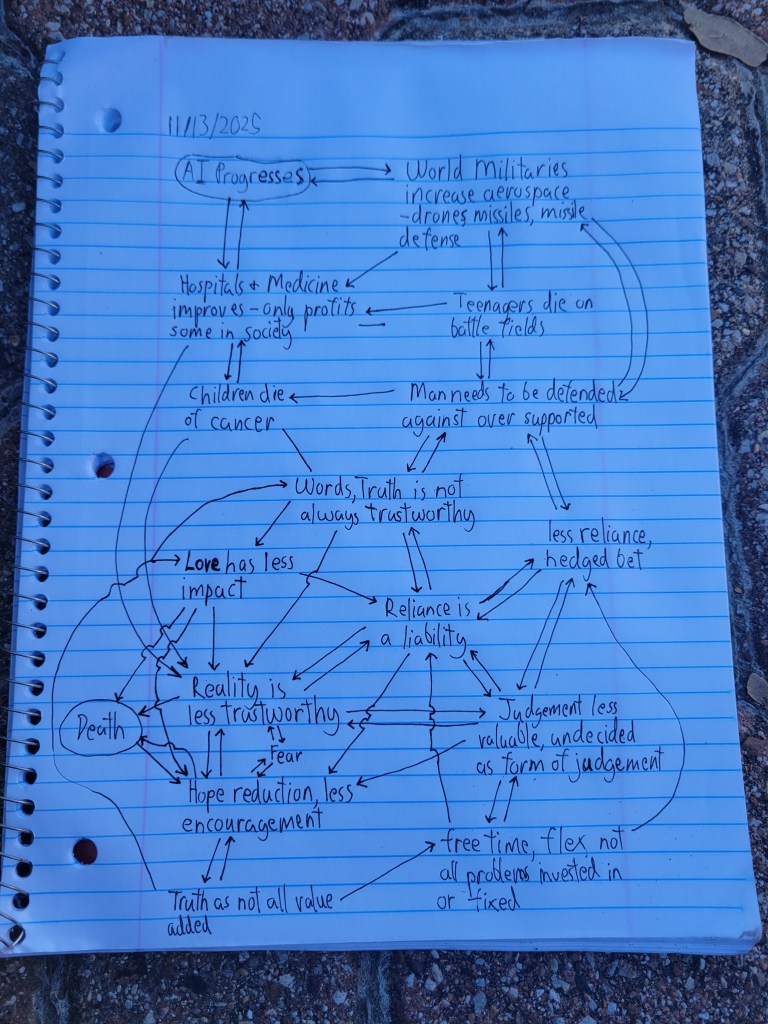 11/13/2025
AI Progresses
World Militaries
increase aerospace
-drones, missiles, missile
defense
Hospitals + Medicine
improves - only profits
some in society
Teenagers die on
battle fields
Children die
of cancer
Man needs to be defended
against over supported
Words, Truth is not
always trustworthy
less reliance,
hedged bet
Love has less
impact
Reliance is
a liability
Reality is
less trustworthy
Death
Judgement less
valuable, undecided
as form of judgement
Fear
Hope reduction, less
encouragement
free time, flex not
all problems invested in
or fixed
Truth as not all value
added